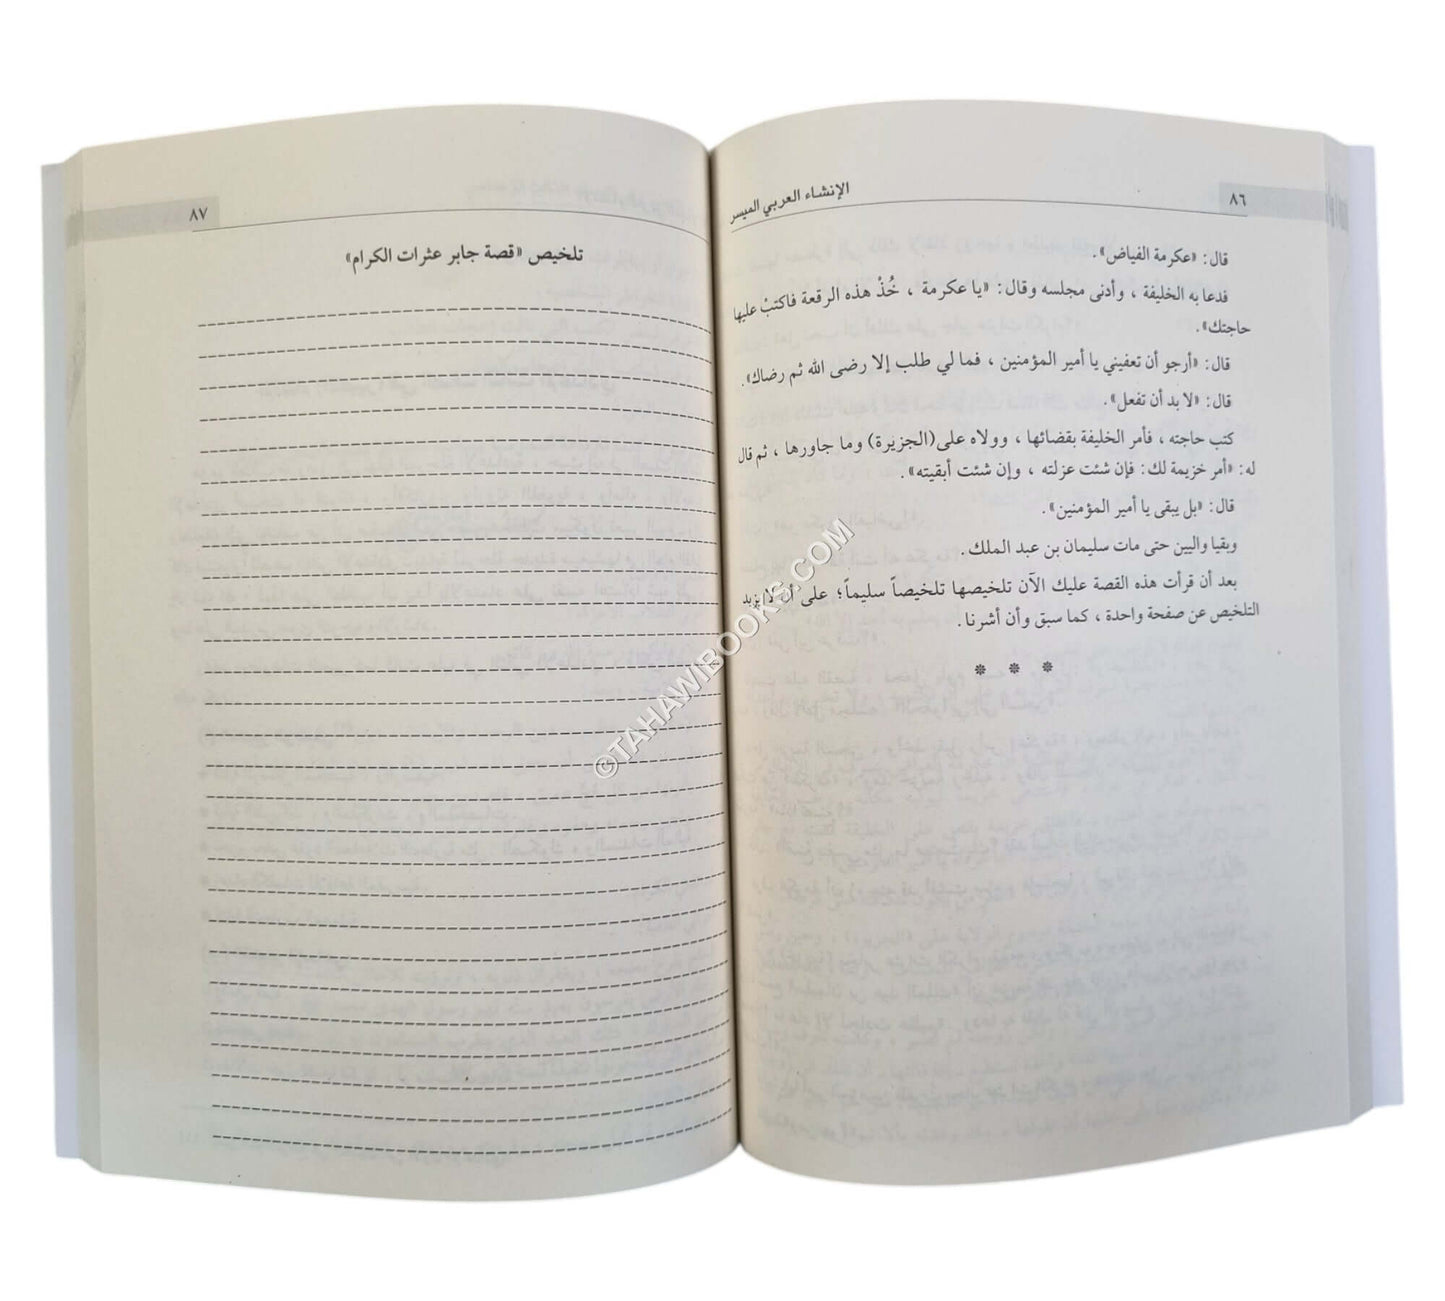 ٨٦
الإنشاء العربي الميسر
قال: «عكرمة الفياض».
فدعا به الخليفة ، وأدنى مجلسه وقال: «يا عكرمة ، خُذْ هذه الرقعة فاكتبْ عليها
حاجتك».
قال: «أرجو أن تعفيني يا أمير المؤمنين ، فما لي طلب إلا رضى الله ثم رضاك».
قال: «لا بد أن تفعل».
كتب حاجته ، فأمر الخليفة بقضائها ، وولاه على (الجزيرة) وما جاورها ، ثم قال
له: «أمر خزيمة لك: فإن شئت عزلته ، وإن شئت أبقيته».
قال: «بل يبقى يا أمير المؤمنين».
وبقيا واليين حتى مات سليمان بن عبد الملك.
بعد أن قرأت هذه القصة عليك الآن تلخيصها تلخيصاً سليماً؛ على أن لا يزيد
التلخيص عن صفحة واحدة ، كما سبق وأن أشرنا.
* * *
٨٧
تلخيص «قصة جابر عثرات الكرام»
©TAHAWIBOOKS.COM